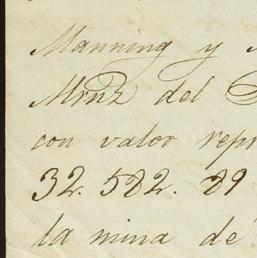 Manning y
del
con valor repr
32.582.89
la mina de